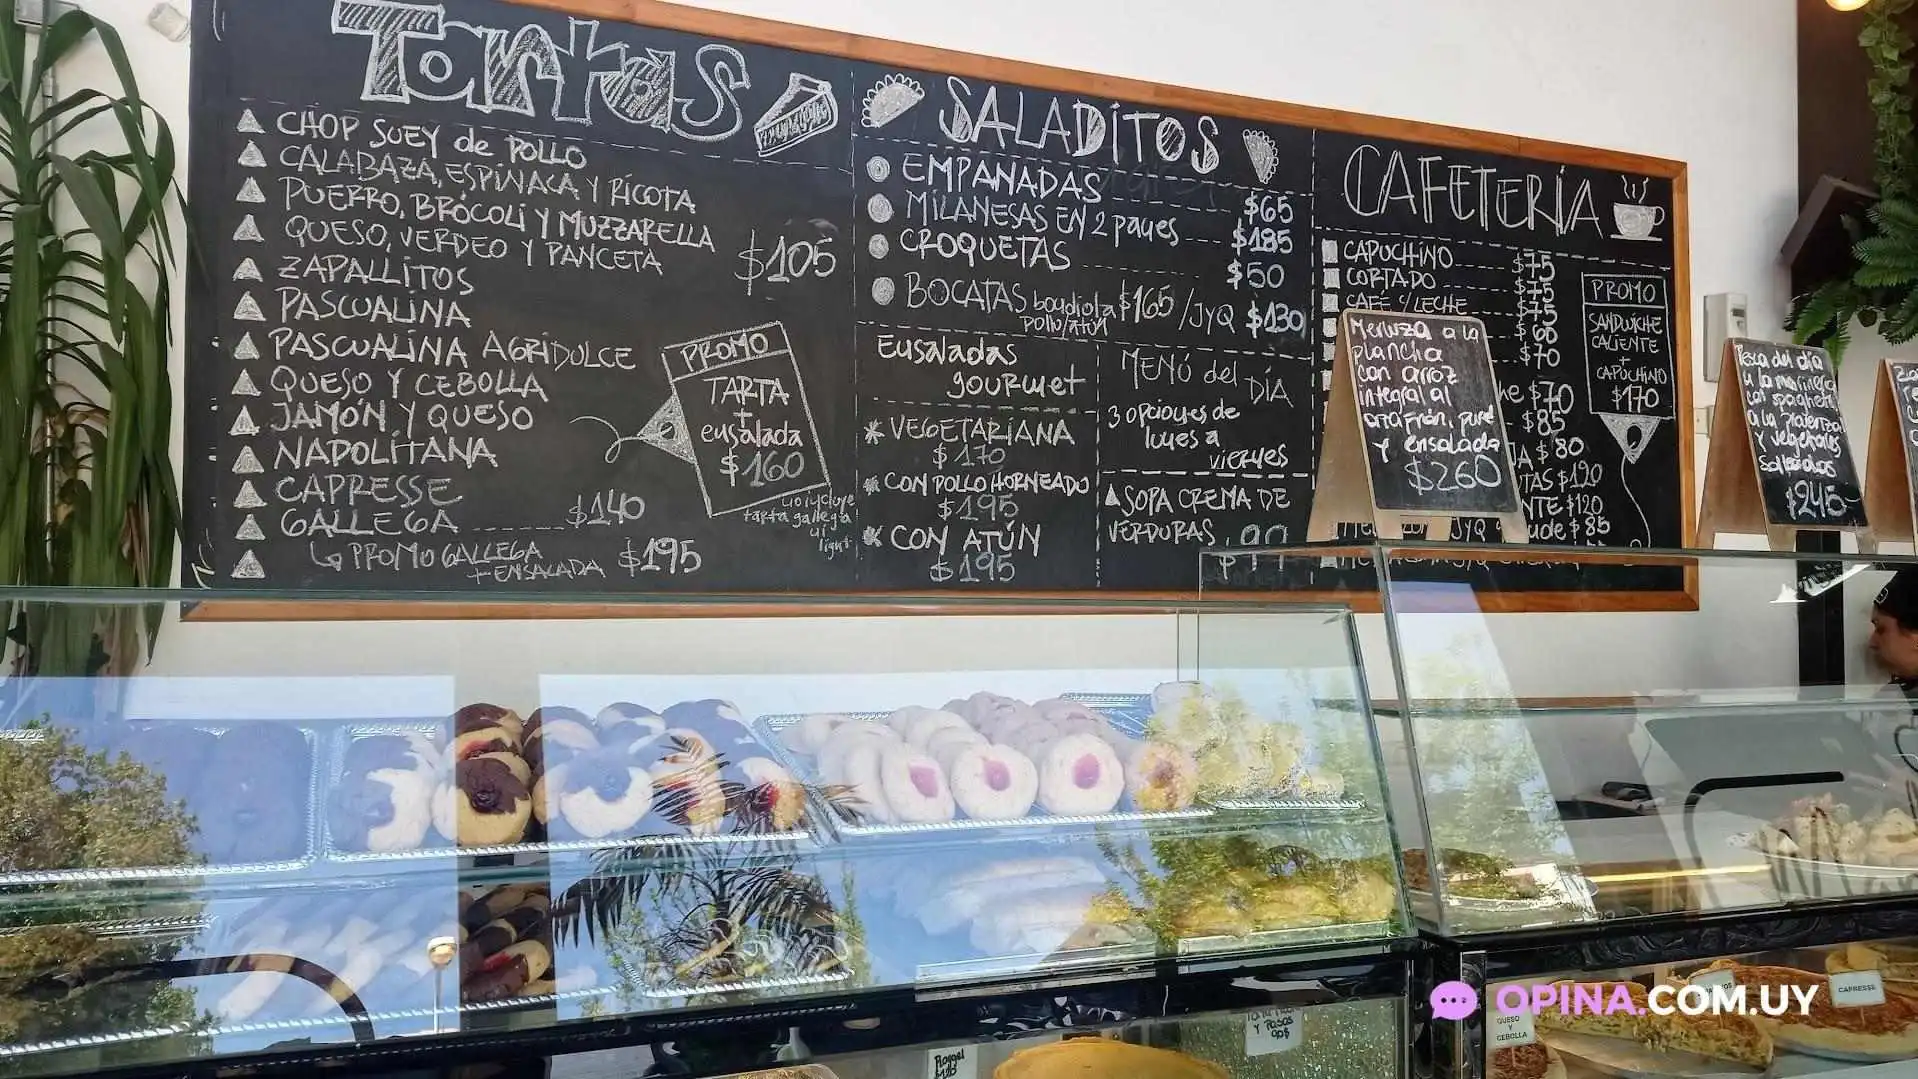 Tartas
CHOP SUEY de POLLO
CALABAZA, ESPINACA Y RICOTA
PUERRO, BRÓCOLI Y MUZZARELLA
QUESO, VERDEO Y PANCETA
$105
ZAPALLITOS
PASCUALINA
PASCUALINA AGRIDULCE
QUESO Y CEBOLLA
JAMÓN Y QUESO
NAPOLITANA
CAPRESSE
GALLEGA $140
PROMO GALLEGA
+ ENSALADA $195
PROMO
TARTA
+
ensalada
$160
no incluye
tarta gallega
light
SALADITOS
EMPANADAS $65
MILANESAS EN 2 panes $185
CROQUETAS $50
BOCATAS bondiola $165 / JyQ $130
pollo/atún
Ensaladas
gourmet
VEGETARIANA
$170
CON POLLO HORNEADO
$195
CON ATÚN
$195
MENÚ del DÍA
3 opciones de
lunes a
viernes
SOPA CREMA DE
VERDURAS
CAFETERÍA
CAPUCHINO $75
CORTADO $75
CAFÉ C/ LECHE $75
$60
$70
$70
$85
$80
$120
$120
$85
PROMO
SANDWICHE
CALIENTE
+
CAPUCHINO
$170
Merluza a la
plancha
con arroz
integral al
azafrán, puré
y ensalada
$260
Pesca del día
a la marinera
con spaghetti
a la provenzal
y vegetales
salteados
$245
QUESO
Y
CEBOLLA
CAPRESSE
Y PASAS
90$
$120
OPINA.COM.UY